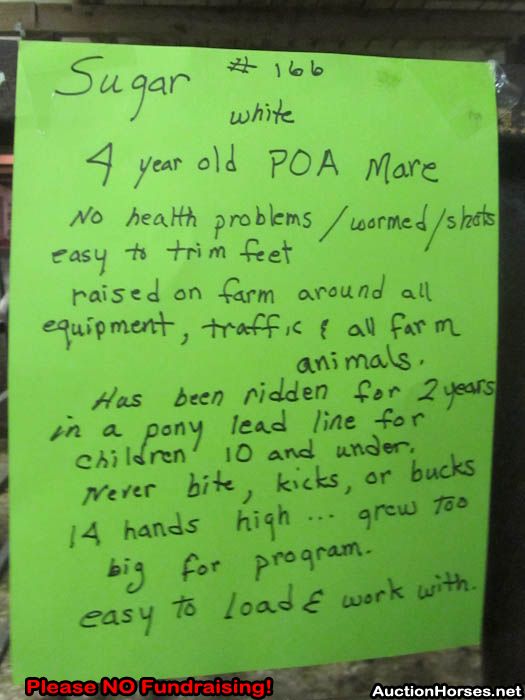 Sugar # 166
white
4 year old POA Mare
No health problems / wormed / shots
easy to trim feet
raised on farm around all
equipment, traffic & all farm
animals.
Has been ridden for 2 years
in a pony lead line for
children 10 and under.
Never bite, kicks, or bucks
14 hands high ... grew too
big for program.
easy to load & work with.
Please NO Fundraising!
AuctionHorses.net